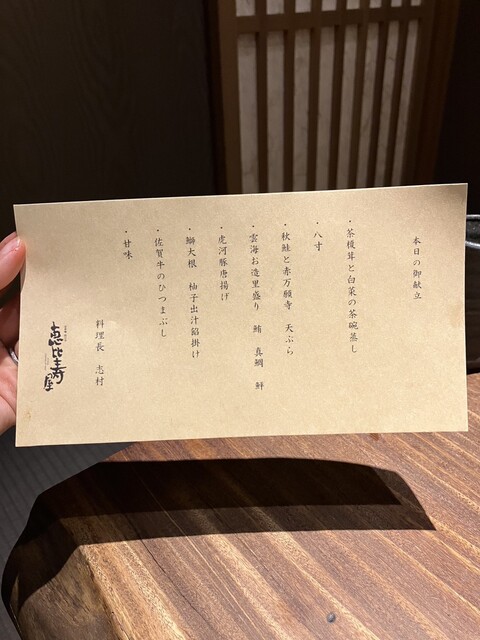 本日の御献立
・茶樹茸と白菜の茶碗蒸し
・八寸
・秋鮭と赤万願寺 天ぷら
・雲海お造里盛り 鮪 真鯛 鮃
・虎河豚唐揚げ
・鰤大根 柚子出汁餡掛け
・佐賀牛のひつまぶし
・甘味
料理長 志村
恵比寿屋